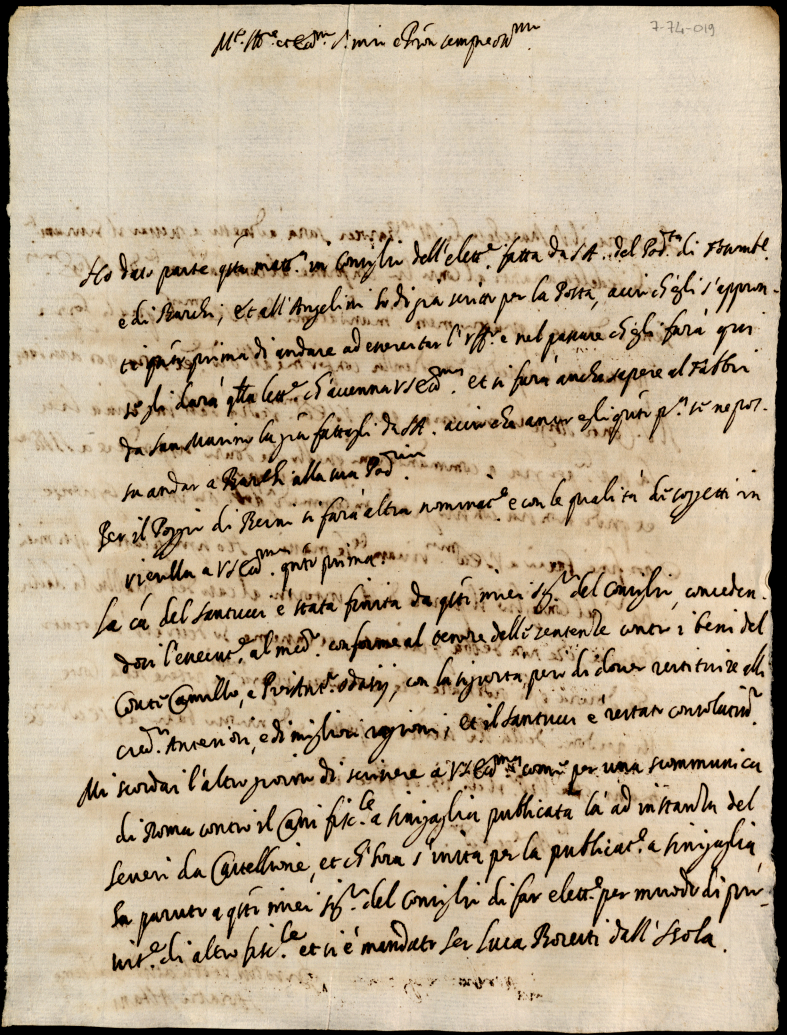 7-74-019
M.to Ill.re et Ecc.mo S.r mio e P.ron sempre oss.mo
Ho dato parte q.sta matt.a in Consiglio dell'elett.e fatta da SA. del Pod.tà di
e di Barchi, et all'Angelini ho di già scritto per la Posta, acciò ch'egli s'appron-
ti q.to prima di andare ad esercitar l'Uff.o e nel passare ch'egli farà qui
se gli darà q.lla lett.a ch'accenna VS Ecc.ma et si farà anche sapere al Fabbri
da San Marino la già fattagli da SA. acciò che ancor egli q.to p.a se ne pos-
sa andar a Barchi alla sua Pod.ria
Per il Poggio di Berni si farà altra nominat.e e con le qualità de soggetti in
vierolla a VS Ecc.ma q.to prima.
La ca.a del Santucci è stata finita da q.sti miei Sig.ri del Consiglio, conceden-
dosi l'esecut.e al med.o conforme al tenore delle sentenze contro i beni del
Conte Camillo, e Pier Ant.o odasij, con la sigurtà però di dover restituire alli
cred.ri Anteriori, e di migliori ragioni, et il Santucci è restato consolatiss.o
Mi scordai l'altro giorno di scrivere a VS Ecc.ma come per una scommunica
di Roma contro il fisc.le a Sinigaglia publicata là ad instanza del
Severi da Castellione, et ch'hora s'invia per la publicat.e a Sinigaglia,
ha paruto a q.sti miei Sig.ri del Consiglio di far elett.e per modo di pro-
vis.e di altro fisc.le et si è mandato Ser Luca dall'Isola.